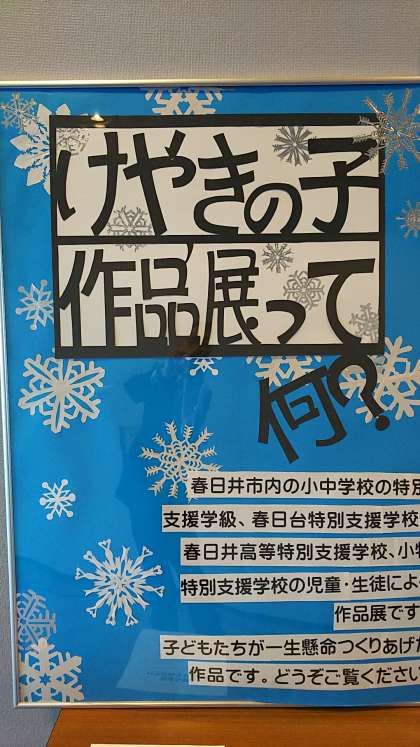 けやきの子
作品展って
何?
春日井市内の小中学校の特別
支援学級、春日台特別支援学校
春日井高等特別支援学校、小牧
特別支援学校の児童・生徒によ
作品展です
子どもたちが一生懸命つくりあげた
作品です。どうぞご覧ください